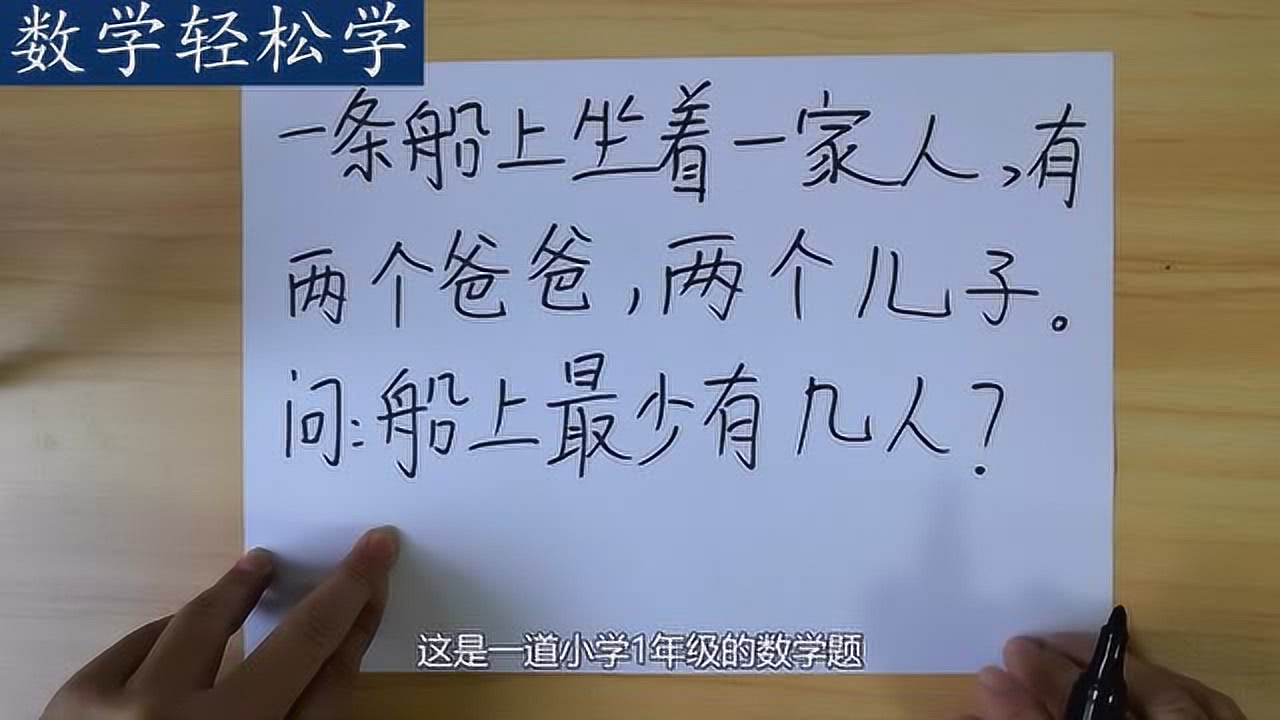 数学轻松学
一条船上坐着一家人,有
两个爸爸,两个儿子。
问:船上最少有几人?
这是一道小学1年级的数学题